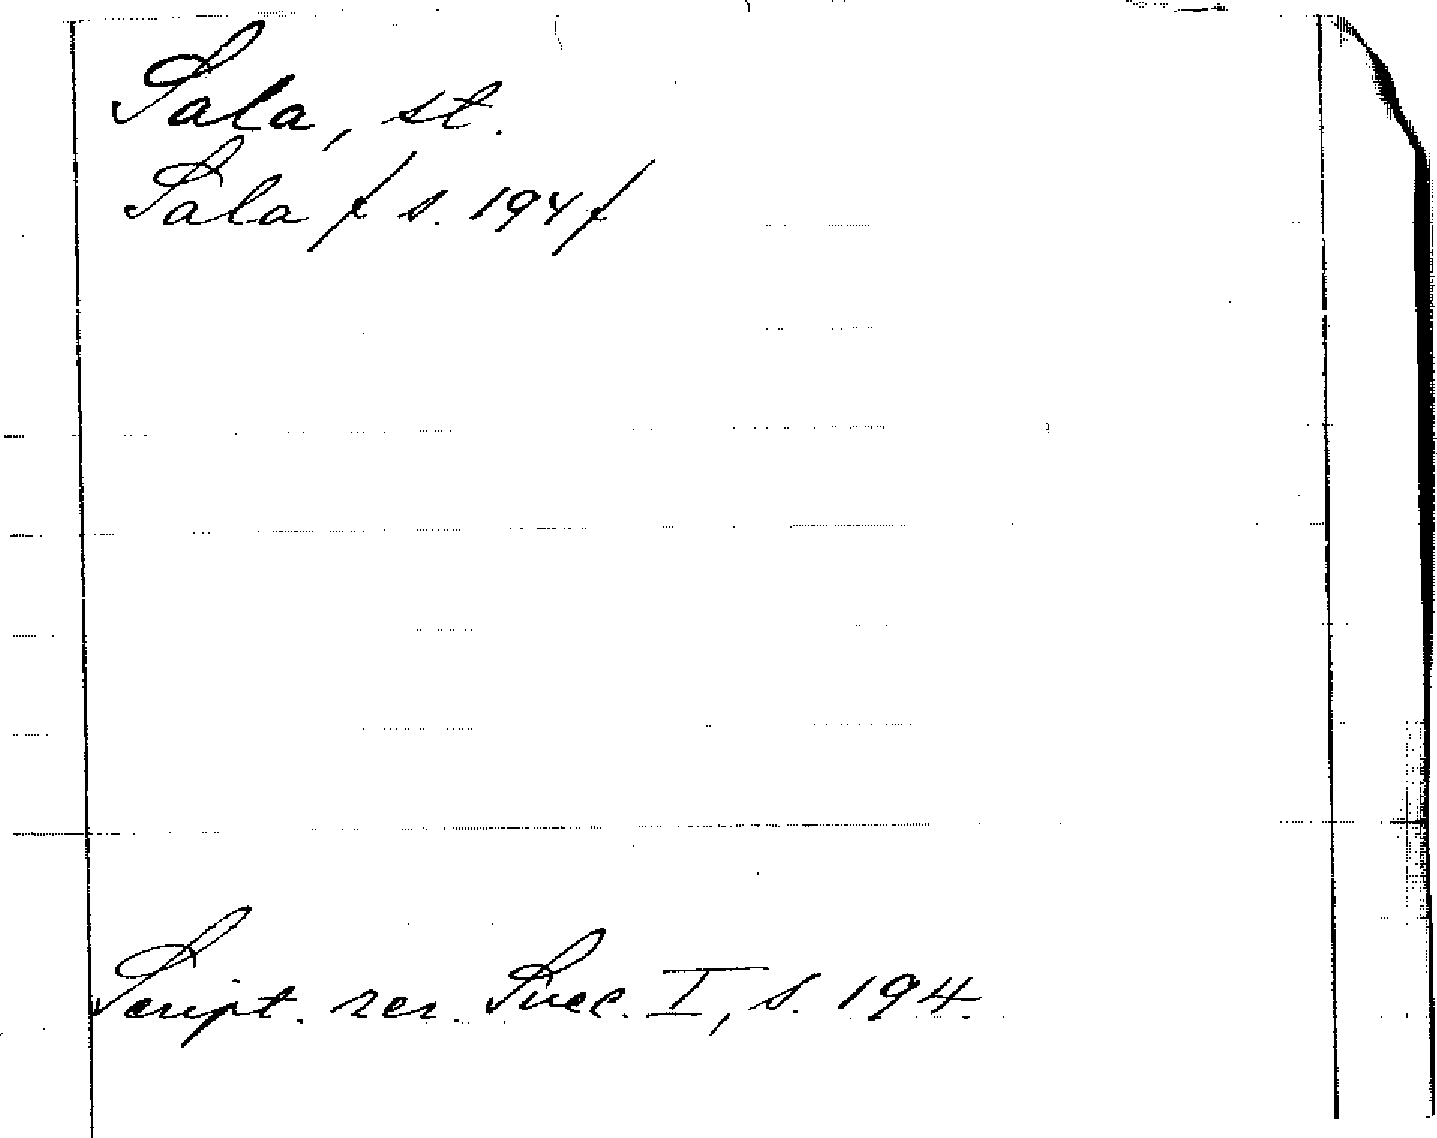 Sala, st.
Sala / s. 194 /
Script. rer. Suec. I, s. 194.